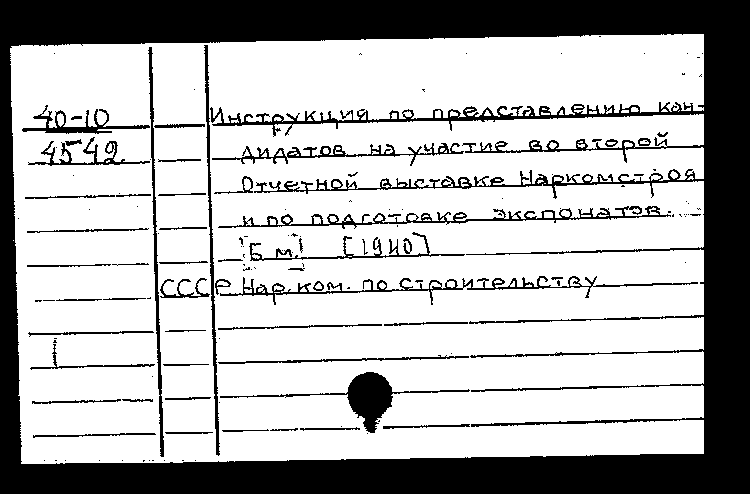 40-10
45 42
Инструкция по представлению кан-
дидатов на участие во второй
Отчетной выставке Наркомстроя
и по подготовке экспонатов.
[Б м.] [1940]
СССР Нар. ком. по строительству